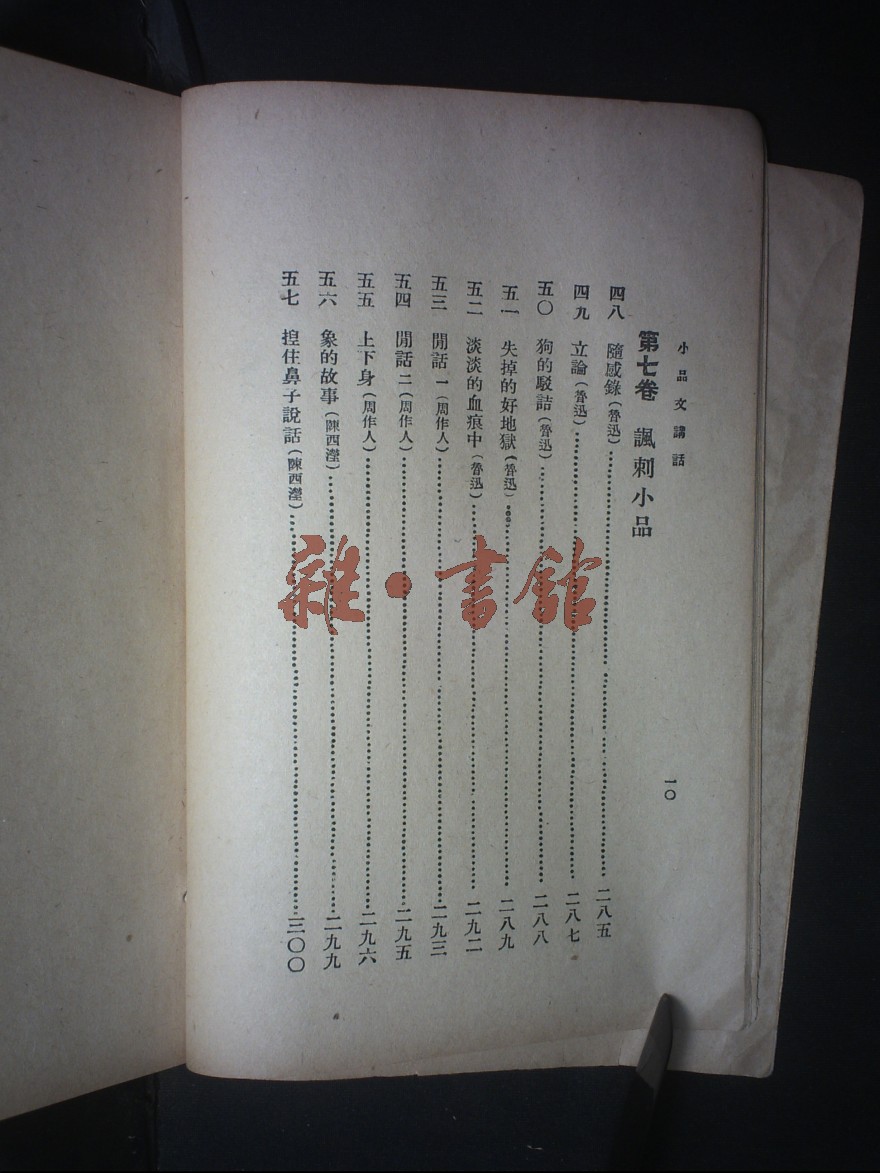 小品文講話
一〇
第七卷 諷刺小品
四八 隨感錄(魯迅)…………二八五
四九 立論(魯迅)…………二八七
五〇 狗的駁詰(魯迅)…………二八八
五一 失掉的好地獄(魯迅)…………二八九
五二 淡淡的血痕中(魯迅)…………二九二
五三 閒話一(周作人)…………二九三
五四 閒話二(周作人)…………二九五
五五 上下身(周作人)…………二九六
五六 象的故事(陳西瀅)…………二九九
五七 揑住鼻子說話(陳西瀅)…………三〇〇
雜·書館